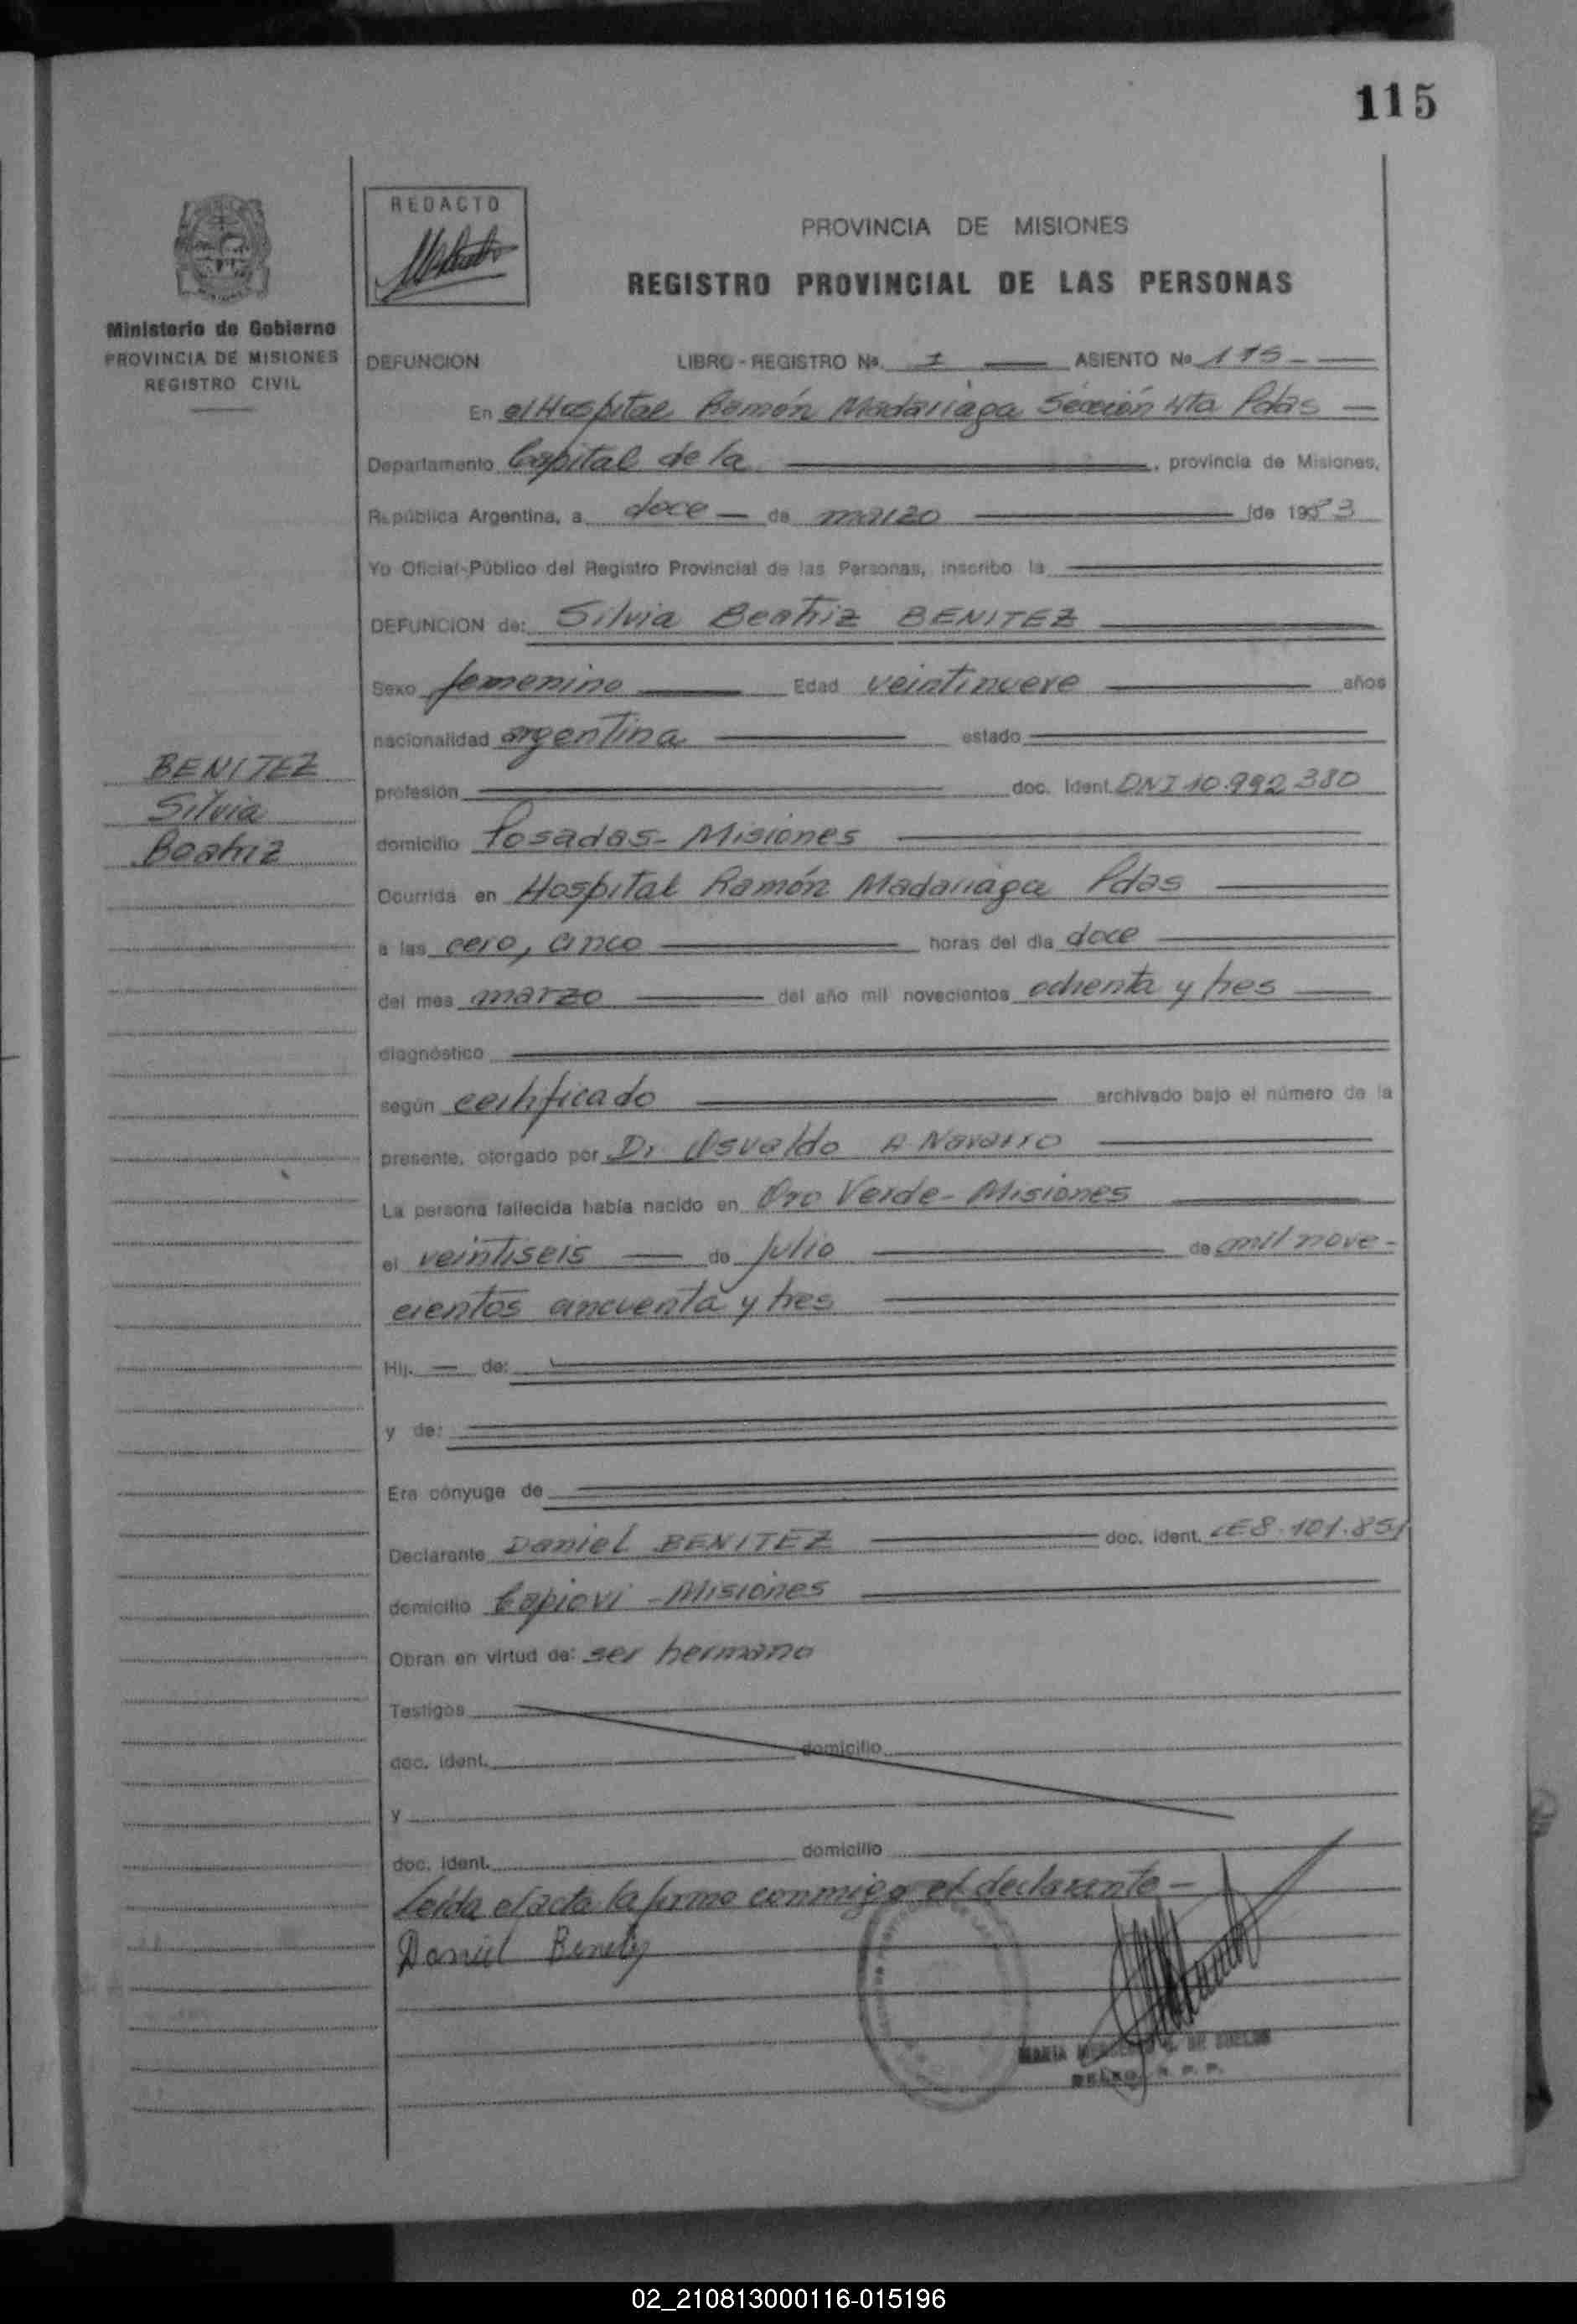 115
REDACTO
PROVINCIA DE MISIONES
REGISTRO PROVINCIAL DE LAS PERSONAS
Ministerio de Gobierno
PROVINCIA DE MISIONES
REGISTRO CIVIL
DEFUNCION LIBRO - REGISTRO No. 1 ASIENTO No 115
En el Hospital Ramón Madariaga Sección 4ta Pdas
Departamento Capital de la , provincia de Misiones,
República Argentina, a doce de marzo de 1983
Yo Oficial-Público del Registro Provincial de las Personas, inscribo la
DEFUNCION de: Silvia Beatriz BENITEZ
Sexo femenino Edad veintinueve años
nacionalidad argentina estado
BENITEZ
Silvia
Beatriz
profesión doc. Ident. DNI 10.992.380
domicilio Posadas - Misiones
Ocurrida en Hospital Ramón Madariaga Pdas
a las cero, cinco horas del día doce
del mes marzo del año mil novecientos ochenta y tres
diagnóstico
según certificado archivado bajo el número de la
presente, otorgado por Dr. Osvaldo A Navarro
La persona fallecida había nacido en Oro Verde - Misiones
el veintiseis de Julio de mil nove-
cientos cincuenta y tres
Hij. de:
y de:
Era cónyuge de
Declarante Daniel BENITEZ doc. ident. LE 8.101.851
domicilio Capiovi - Misiones
Obran en virtud de: ser hermano
Testigos
doc. ident. domicilio
y
doc. ident. domicilio
Leída el acta la firma conmigo el declarante -
Daniel Benitez
MARIA DE
02_210813000116-015196